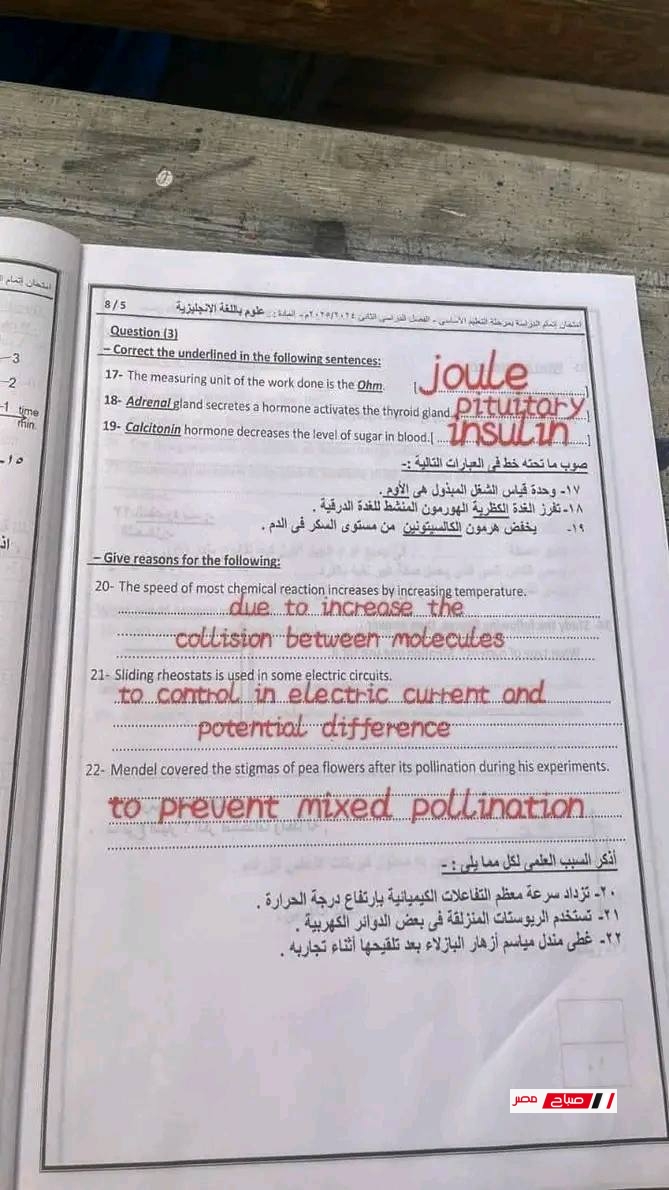 امتحان إتمام ا
3
2
1 time
min.
١٥-
8/5
امتحان إتمام الدراسة بمرحلة التعليم الأساسى - الفصل الدراسى الثانى ٢٠٢٤/٢٠٢٥م - المادة : علوم باللغة الإنجليزية
Question (3)
– Correct the underlined in the following sentences:
17- The measuring unit of the work done is the Ohm. [joule]
18- Adrenal gland secretes a hormone activates the thyroid gland. pituitary]
19- Calcitonin hormone decreases the level of sugar in blood.[insulin]
صوب ما تحته خط فى العبارات التالية :-
١٧- وحدة قياس الشغل المبذول هى الأوم.
١٨- تفرز الغدة الكظرية الهورمون المنشط للغدة الدرقية .
١٩- يخفض هرمون الكالسيتونين من مستوى السكر فى الدم .
– Give reasons for the following:
20- The speed of most chemical reaction increases by increasing temperature.
due to increase the
collision between molecules
21- Sliding rheostats is used in some electric circuits.
to control in electric current and
potential difference
22- Mendel covered the stigmas of pea flowers after its pollination during his experiments.
to prevent mixed pollination
أذكر السبب العلمى لكل مما يلى : -
٢٠- تزداد سرعة معظم التفاعلات الكيميائية بارتفاع درجة الحرارة .
٢١- تستخدم الريوستات المنزلقة فى بعض الدوائر الكهربية .
٢٢- غطى مندل مياسم أزهار البازلاء بعد تلقيحها أثناء تجاربه .
صباح مصر